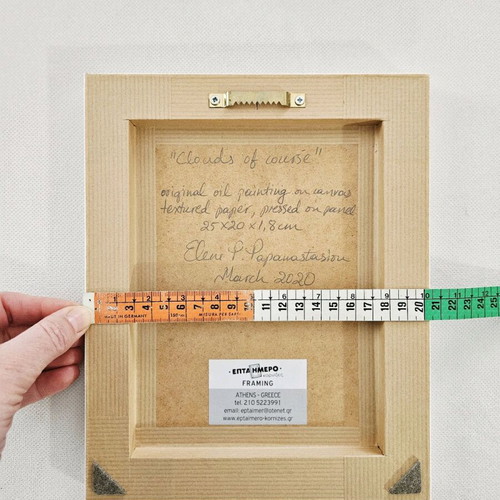 "Clouds of course"
original oil painting on canvas
textured paper, pressed on panel
25x20x1,8cm
Eleni P. Papanastasiou
March 2020
2 3 4
6 7 8
10
3 4 5 6 7 8 9
11 12 13 14 15 16 17 18 19 20 21 22 23 24 25
MADE IN GERMANY
MISURA PER SARTI
· ΕΠΤΑΗΜΕΡΟ ·
κορνίζες
FRAMING
ATHENS - GREECE
tel. 210 5223991
email: eptaimer@otenet.gr
www.eptaimero-kornizes.gr